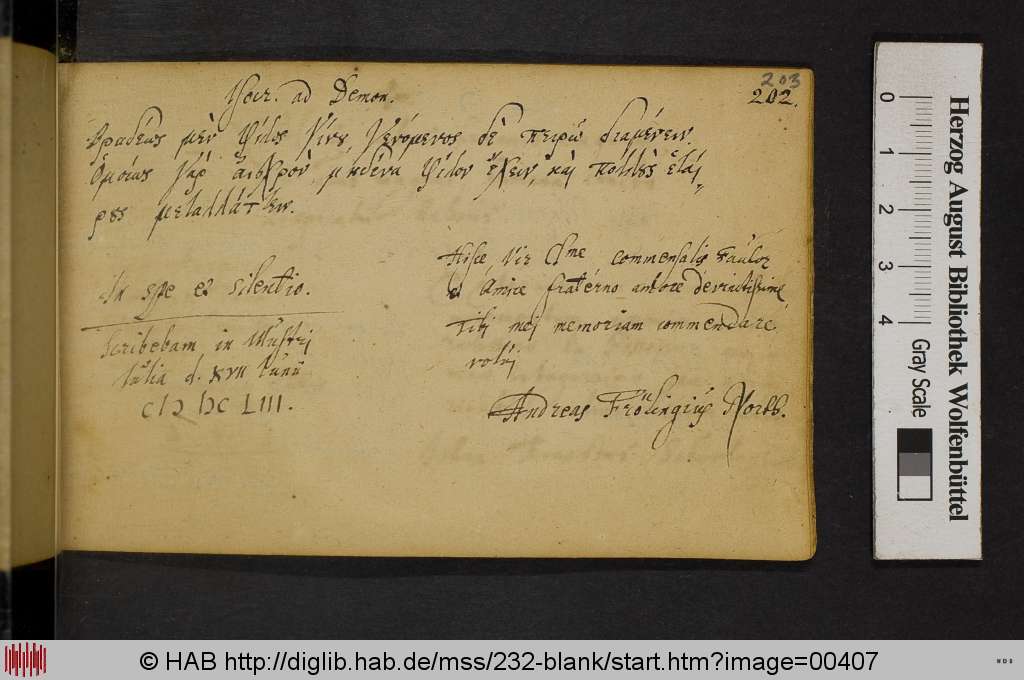 Isocr. ad Demon.
203
202.
Βραδέως μὲν φίλος γίνȣ γενόμενος δὲ πειρῶ διαμένειν.
Ὁμοίως γὰρ αἰσχρὸν μηδένα φίλον ἔχειν καὶ πολλȣ̀ς ἑταί„
ρȣς μεταλλάτειν.
In spe et silentio.
Scribebam in
Iulia d. XVII Iunii
CIↃ IↃC LIII.
Hisce Vir Clme commensalis Fautor
et Amice fraterno amore devinctissime,
Tibi mei memoriam commendare
volui
Andreas Frölingius North.
0
1
2
3
4
Gray Scale
Herzog August Bibliothek Wolfenbüttel
© HAB http://diglib.hab.de/mss/232-blank/start.htm?image=00407